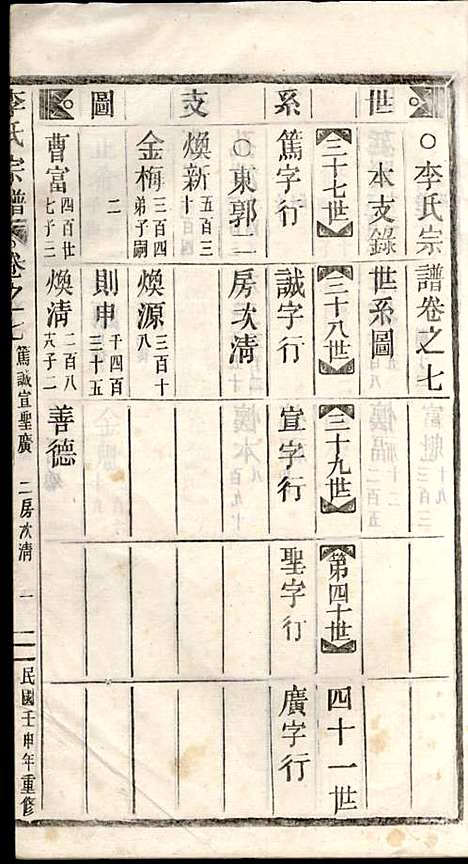 世系支圖
○李氏宗譜卷之一七
本支錄 世系圖
三十七世 三十八世 三十九世 第四十世 四十一世
篤字行 誠字行 宣字行 聖字行 廣字行
○東郭二一 二房次清
煥新 五百三十
金梅 三百四 弟子嗣 煥源 三百十八
二 則申 千四百三十五
曹富 四百世七 子三 煥清 二百八六 子二 善德
李氏宗譜 卷之一七 篤誠宣聖廣 二房次清 一 民國壬申年重修